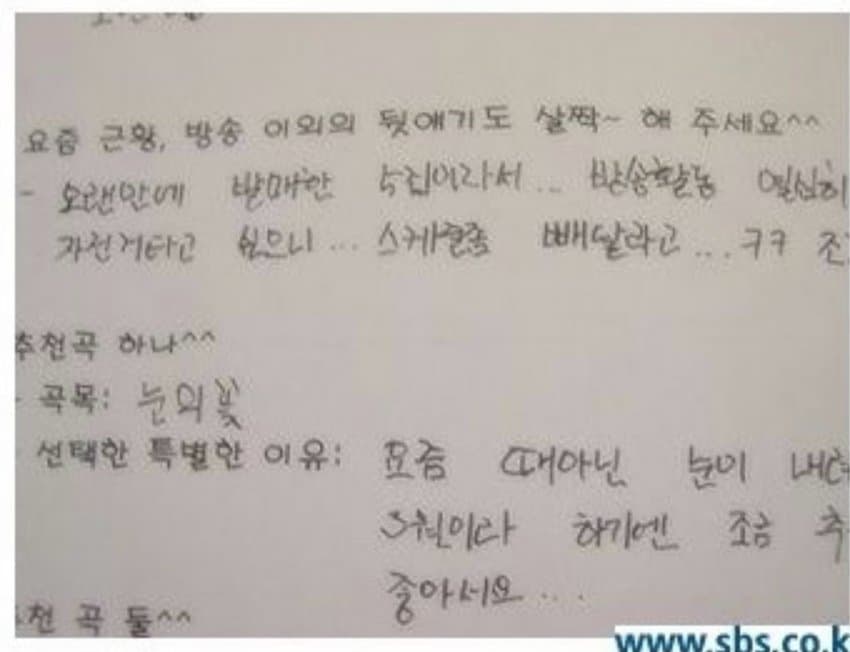 요즘 근황, 방송 이외의 뒷얘기도 살짝~ 해 주세요^^
- 오랜만에 발매한 5집이라서... 방송활동 열심히
자전거타고 싶으니... 스케줄좀 빼달라고...ㅋㅋ 조
추천곡 하나^^
- 곡목: 눈의꽃
- 선택한 특별한 이유: 요즘 때아닌 눈이 내
3월이라 하기엔 조금 추
좋아서요...
추천 곡 둘^^
www.sbs.co.k